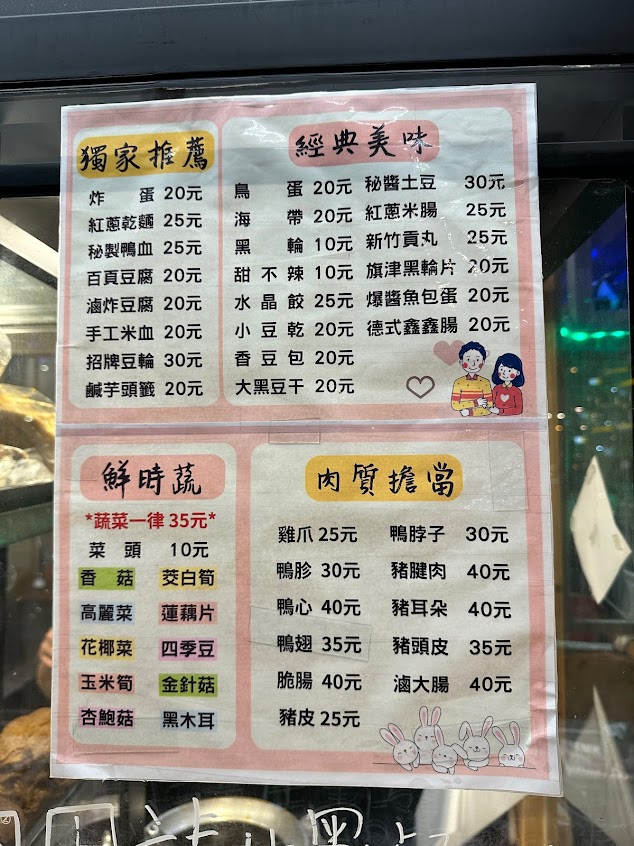 獨家推薦
炸蛋 20元
紅蔥乾麵 25元
秘製鴨血 25元
百頁豆腐 20元
滷炸豆腐 20元
手工米血 20元
招牌豆輪 30元
鹹芋頭籤 20元
經典美味
鳥蛋 20元
海帶 20元
黑輪 10元
甜不辣 10元
水晶餃 25元
小豆乾 20元
香豆包 20元
大黑豆干 20元
秘醬土豆 30元
紅蔥米腸 25元
新竹貢丸 25元
旗津黑輪片 20元
爆醬魚包蛋 20元
德式鑫鑫腸 20元
鮮時蔬
*蔬菜一律 35元*
菜頭 10元
香菇 茭白筍
高麗菜 蓮藕片
花椰菜 四季豆
玉米筍 金針菇
杏鮑菇 黑木耳
肉質擔當
雞爪 25元 鴨脖子 30元
鴨胗 30元 豬腱肉 40元
鴨心 40元 豬耳朵 40元
鴨翅 35元 豬頭皮 35元
脆腸 40元 滷大腸 40元
豬皮 25元